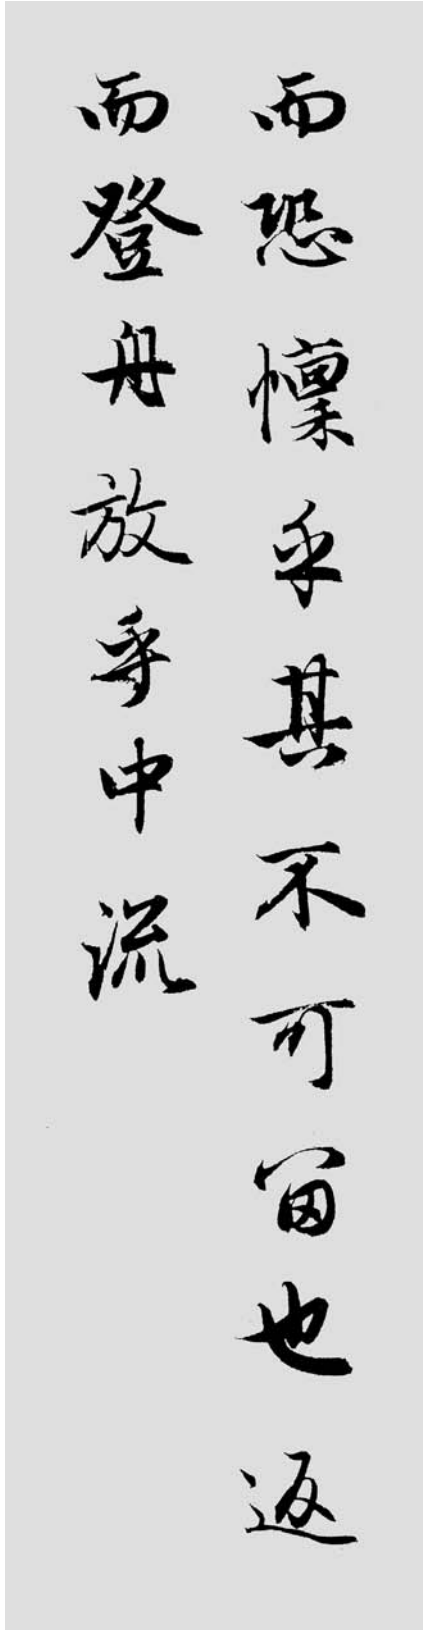 而恐懍乎其不可留也返
而登舟放乎中流